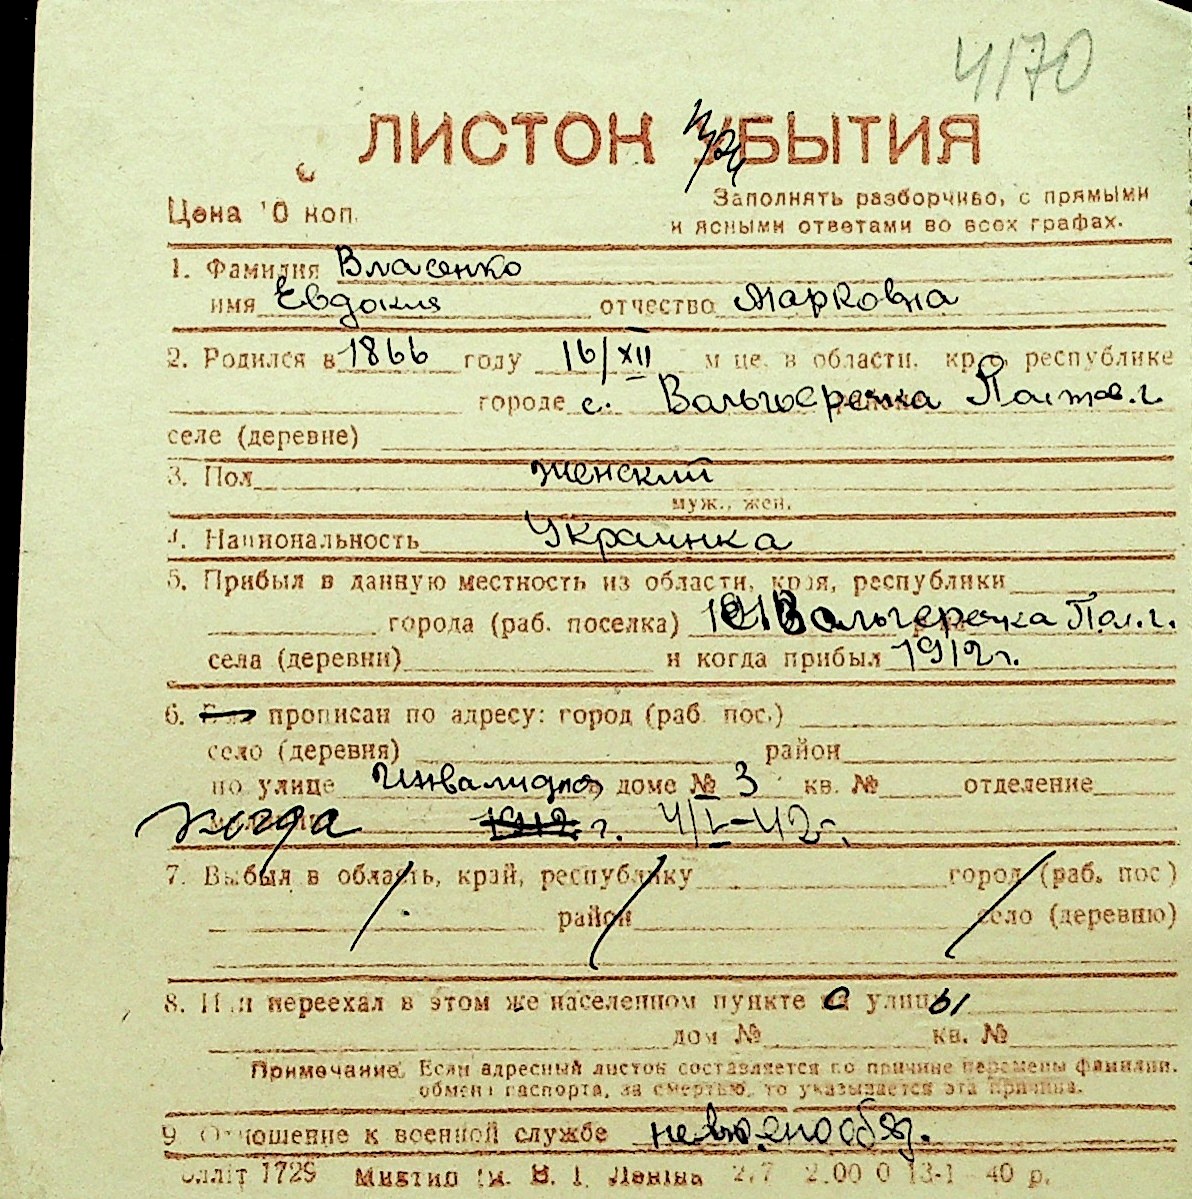 4170
ЛИСТОК УБЫТИЯ
Цена 10 коп.
Заполнять разборчиво, с прямыми
и ясными ответами во всех графах.
1. Фамилия Власенко
имя Евдокия отчество Марковна
2. Родился в 1866 году 16/XII м-це, в области, кр республике
городе с. Вольгеречка Полтав. г.
селе (деревне)
3. Пол женский
муж., жен.
4. Национальность Украинка
5. Прибыл в данную местность из области, края, республики
города (раб. поселка) Вольгеречка Пол. г.
села (деревни) и когда прибыл 1912 г.
6. прописан по адресу: город (раб. пос.)
село (деревня) район
по улице Инвалидная доме № 3 кв. № отделение
когда 1912 г. 4/I-42 г.
7. Выбыл в область, край, республику город (раб. пос)
район село (деревню)
8. Или переехал в этом же населенном пункте с улицы
дом № кв. №
Примечание. Если адресный листок составляется по причине перемены фамилии,
обмена паспорта, за смертью, то указывается эта причина.
9 Отношение к военной службе невоенообяз.
Облліт 1729 Миктип ім. В. І. Леніна 2.7 2.00 0 13-1 40 р.